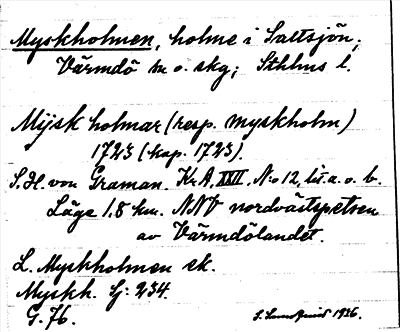 Myskholmen, holme i Saltsjön;
Värmdö sn o. skg; Sthlms l.
Mijsk holmar (resp. Myskholm)
1723 (kap. 1723).
S. H. von Graman. Kr A, XXII, N:o 12, lit. a. o. b.
Läge 1,8 km. NNV nordvästspetsen
av Värmdölandet.
L. Myskholmen ek.
Myskh. Sj: 234.
G. 76.
1936.